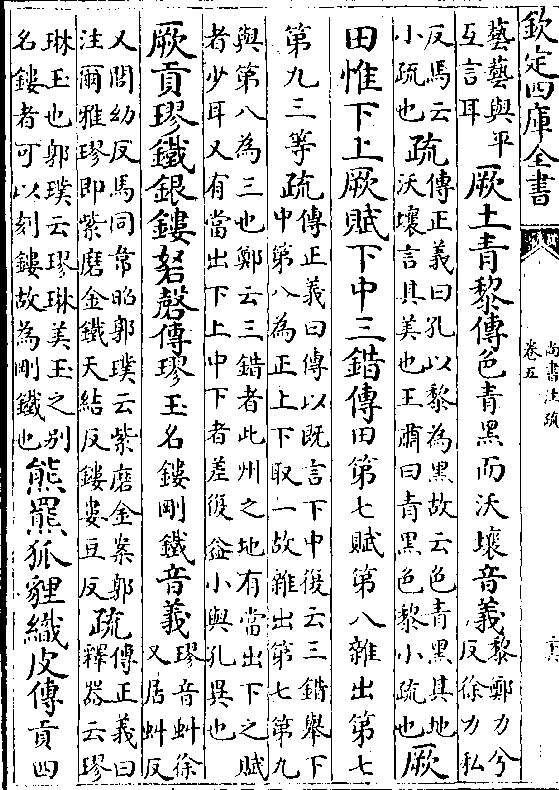 欽定四庫全書
尚書注疏
卷五
藝藝與平
互言耳
厥土青黎傳色青黑而沃壤音義
黎鄭力兮
反徐力私
反馬云
小疏也
疏
傳正義曰孔以黎為黑故云色青黑其地
沃壤言其美也王肅曰青黑色黎小疏也
厥
田惟下上厥賦下中三錯傳田第七賦第八雜出第七
第九三等疏
傳正義曰傳以既言下中復云三錯舉下
中第八為正上下取一故雜出第七第九
與第八為三也鄭云三錯者此州之地有當出下之賦
者少耳又有當出下上中下者差復益小與孔異也
厥貢璆鐵銀鏤砮磬傳璆玉名鏤剛鐵音義
璆音蚪徐
又居蚪反
又閭幼反馬同常昭郭璞云紫磨金案郭
注爾雅璆即紫磨金鐵天結反鏤婁豆反
疏
傳正義曰
釋器云璆
琳玉也郭璞云璆琳美玉之别
名鏤者可以刻鏤故為剛鐵也
熊羆狐貍織皮傳貢四